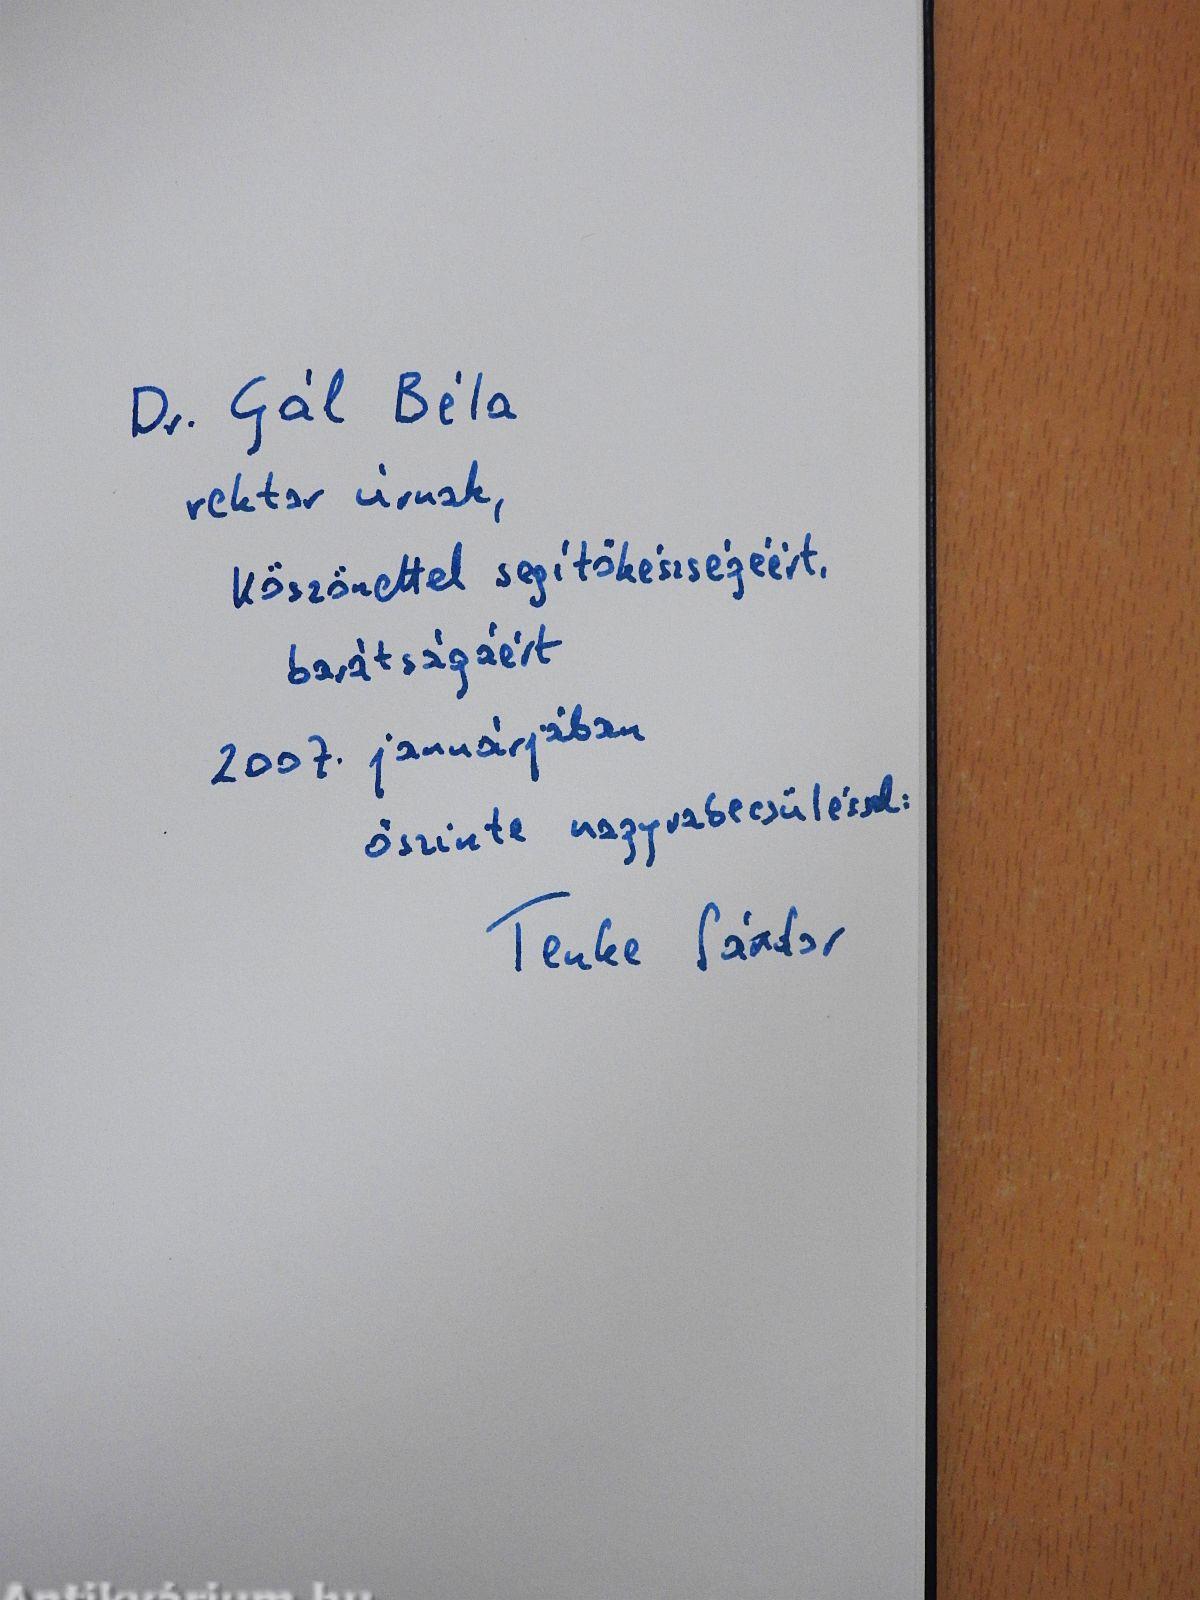 Dr. Gál Béla
rektor úrnak,
Köszönettel segítőkészségéért,
barátságáért
2007. januárjában
őszinte nagyrabecsüléssel:
Tenke Sándor
Antikvárium.hu